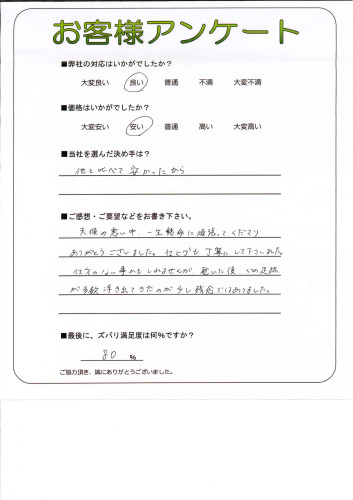 お客様アンケート
■弊社の対応はいかがでしたか？
大変良い 良い 普通 不満 大変不満
■価格はいかがでしたか？
大変安い 安い 普通 高い 大変高い
■当社を選んだ決め手は？
他と比べて安かったから
■ご感想・ご要望などをお書き下さい。
天候の悪い中、一生懸命に頑張ってくださり
ありがとうございました。仕上げも丁寧にして下さいました。
仕方のない事かもしれませんが、乾いた後、
が多数浮き出てきたのが少し残念ではありました。
■最後に、ズバリ満足度は何%ですか？
80 %
ご協力頂き、誠にありがとうございました。